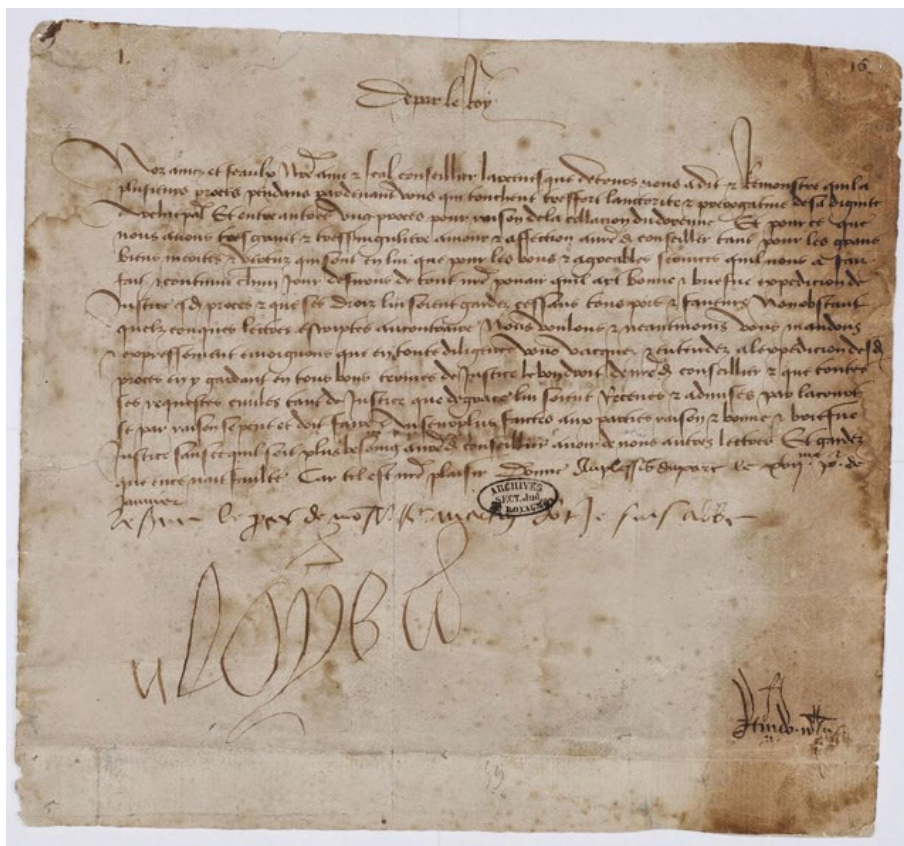 1.
16
De par le Roy
Noz amez et feaulx Nre ame & feal conseillier larcevesque de Tours nous a dit & Remonstre quil a
plusieurs proces pendans pardevant vous qui touchent tresfort lauctorite & prerogative de sa dignite
Archiepal Et entre autres ung proces pour raison de la collacion du doyenne Et pour ce que
nous avons tresgrant & tressinguliere amour & affection a nred conseillier tant pour les grans
biens merites & vertuz qui sont en lui que pour les bons & agreables services quil nous a fait
fait & continue chun jour desirons de tout nre povair quil ait bonne & briefve expedicion de
Justice esd proces & que ses droiz lui soient gardez cessans tous pors & faveurs Nonobstant
quelzconques lettres escriptes au contraire Nous voulons & neantmoins vous mandons
& expressement enjoignons que en toute diligence vous vacquez & entendez a lexpedicion desd
proces en y gardant en tous bons termes de Justice le bon droit de nred conseillier & que toutes
ses requestes civiles tant de Justice que de grace lui soient Receues & admises par la court
se par raison se peut et doit faire & au surplus faictes aux parties raison & bonne & briefve
Justice sans ce quil soit plus besoing a nred conseillier avoir de nous autres lettres Et gardez
que en ce nait faulte Car tel est nre plaisir Donne Au plesseis du parc le xviijme jor de
Janvier
ARCHIVES
SECT. Jud.
DU ROYAUME
de mons St Martin dont Je suis abbe
Loys